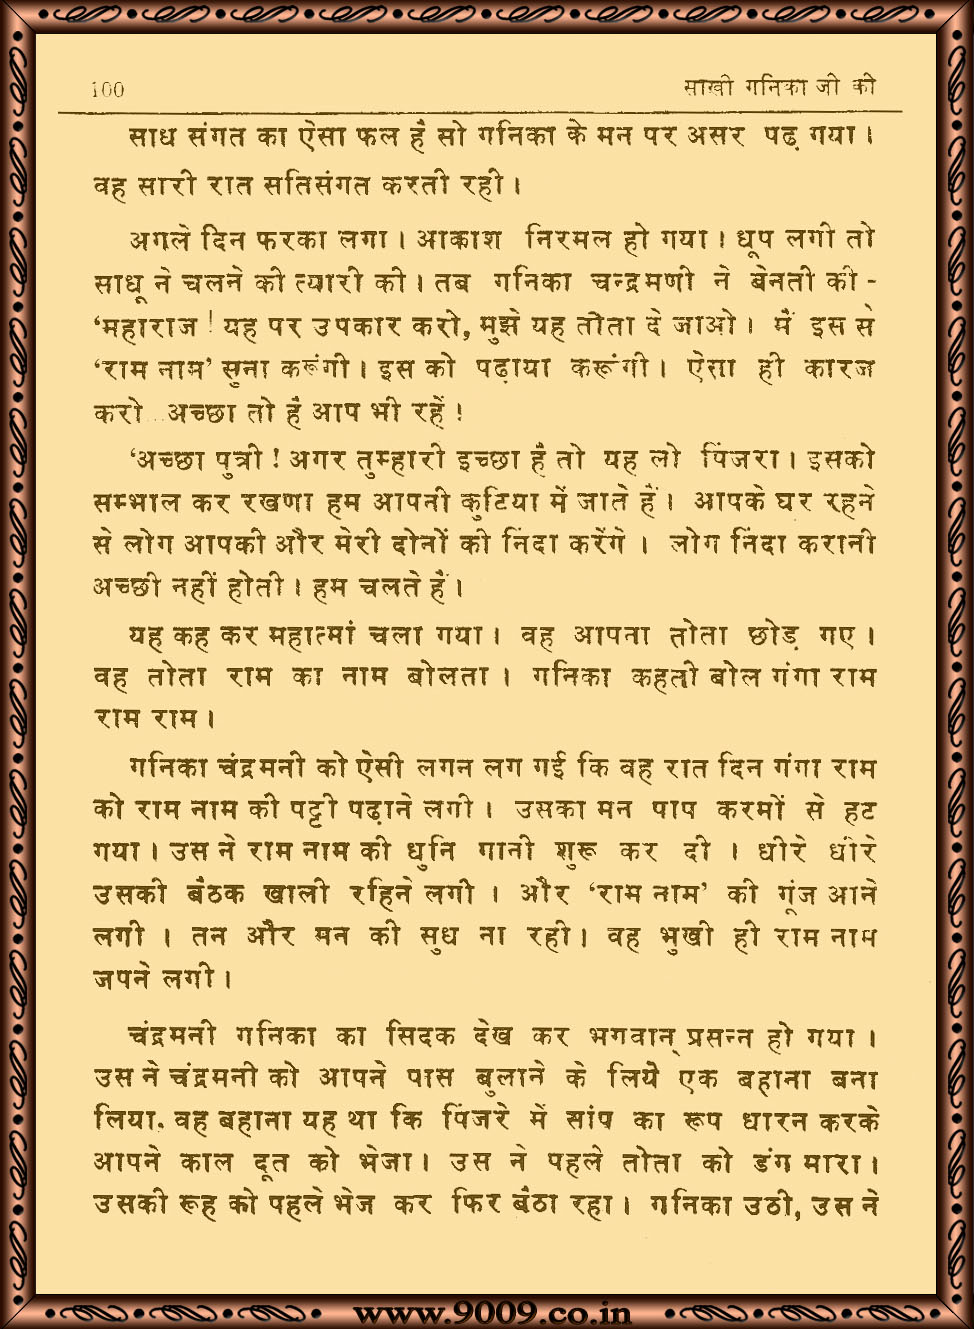 100 साखी गनिका जी की
साध संगत का ऐसा फल है सो गनिका के मन पर असर पढ़ गया ।
वह सारी रात सतिसंगत करती रही ।
अगले दिन फरका लगा । आकाश निरमल हो गया । धूप लगी तो
साधू ने चलने की त्यारी की । तब गनिका चन्द्रमणी ने बेनती की -
‘महाराज ! यह पर उपकार करो, मुझे यह तोता दे जाओ । मैं इस से
‘राम नाम’ सुना करूंगी । इस को पढ़ाया करूंगी । ऐसा ही कारज
करो...अच्छा तो है आप भी रहें !
‘अच्छा पुत्री ! अगर तुम्हारी इच्छा है तो यह लो पिंजरा । इसको
सम्भाल कर रखणा हम आपनी कुटिया में जाते हैं । आपके घर रहने
से लोग आपकी और मेरी दोनों की निंदा करेंगे । लोग निंदा करानी
अच्छी नहीं होती । हम चलते हैं ।
यह कह कर महात्मां चला गया । वह आपना तोता छोड़ गए ।
वह तोता राम का नाम बोलता । गनिका कहती बोल गंगा राम
राम राम ।
गनिका चंद्रमनी को ऐसी लगन लग गई कि वह रात दिन गंगा राम
को राम नाम की पट्टी पढ़ाने लगी । उसका मन पाप करमों से हट
गया । उस ने राम नाम की धुनि गानी शुरू कर दी । धीरे धीरे
उसकी बैठक खाली रहिने लगी । और ‘राम नाम’ की गूंज आने
लगी । तन और मन की सुध ना रही । वह भुखी ही राम नाम
जपने लगी ।
चंद्रमनी गनिका का सिदक देख कर भगवान् प्रसन्न हो गया ।
उस ने चंद्रमनी को आपने पास बुलाने के लिये एक बहाना बना
लिया. वह बहाना यह था कि पिंजरे में सांप का रूप धारन करके
आपने काल दूत को भेजा । उस ने पहले तोता को डंग मारा ।
उसकी रूह को पहले भेज कर फिर बैठा रहा । गनिका उठी, उस ने
www.9009.co.in